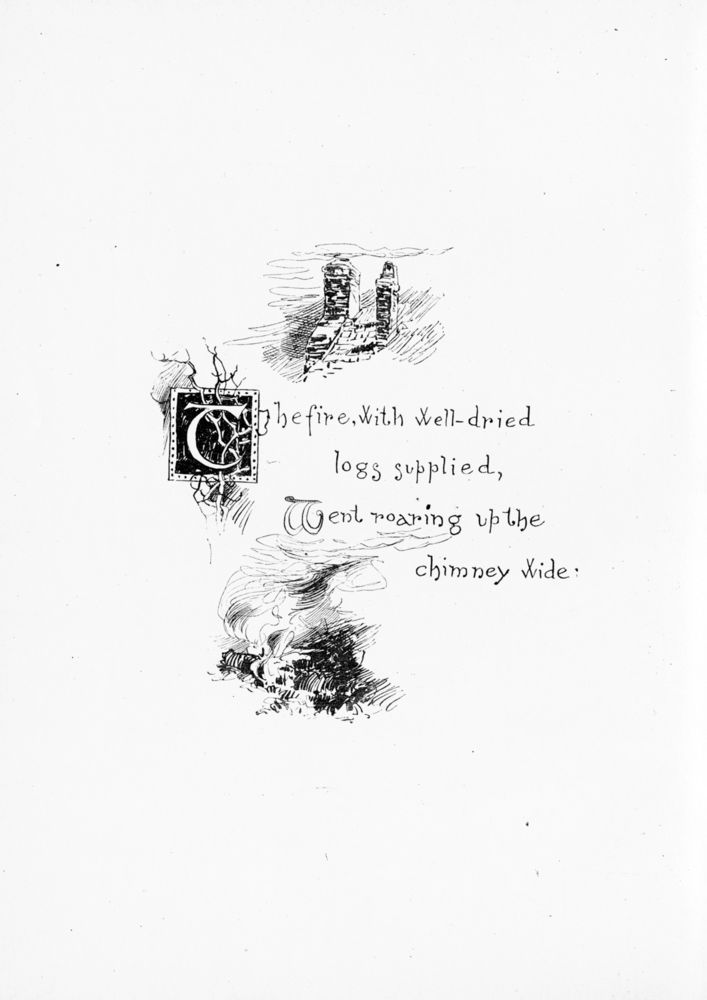 The fire, with well-dried
logs supplied,
Went roaring up the
chimney wide: